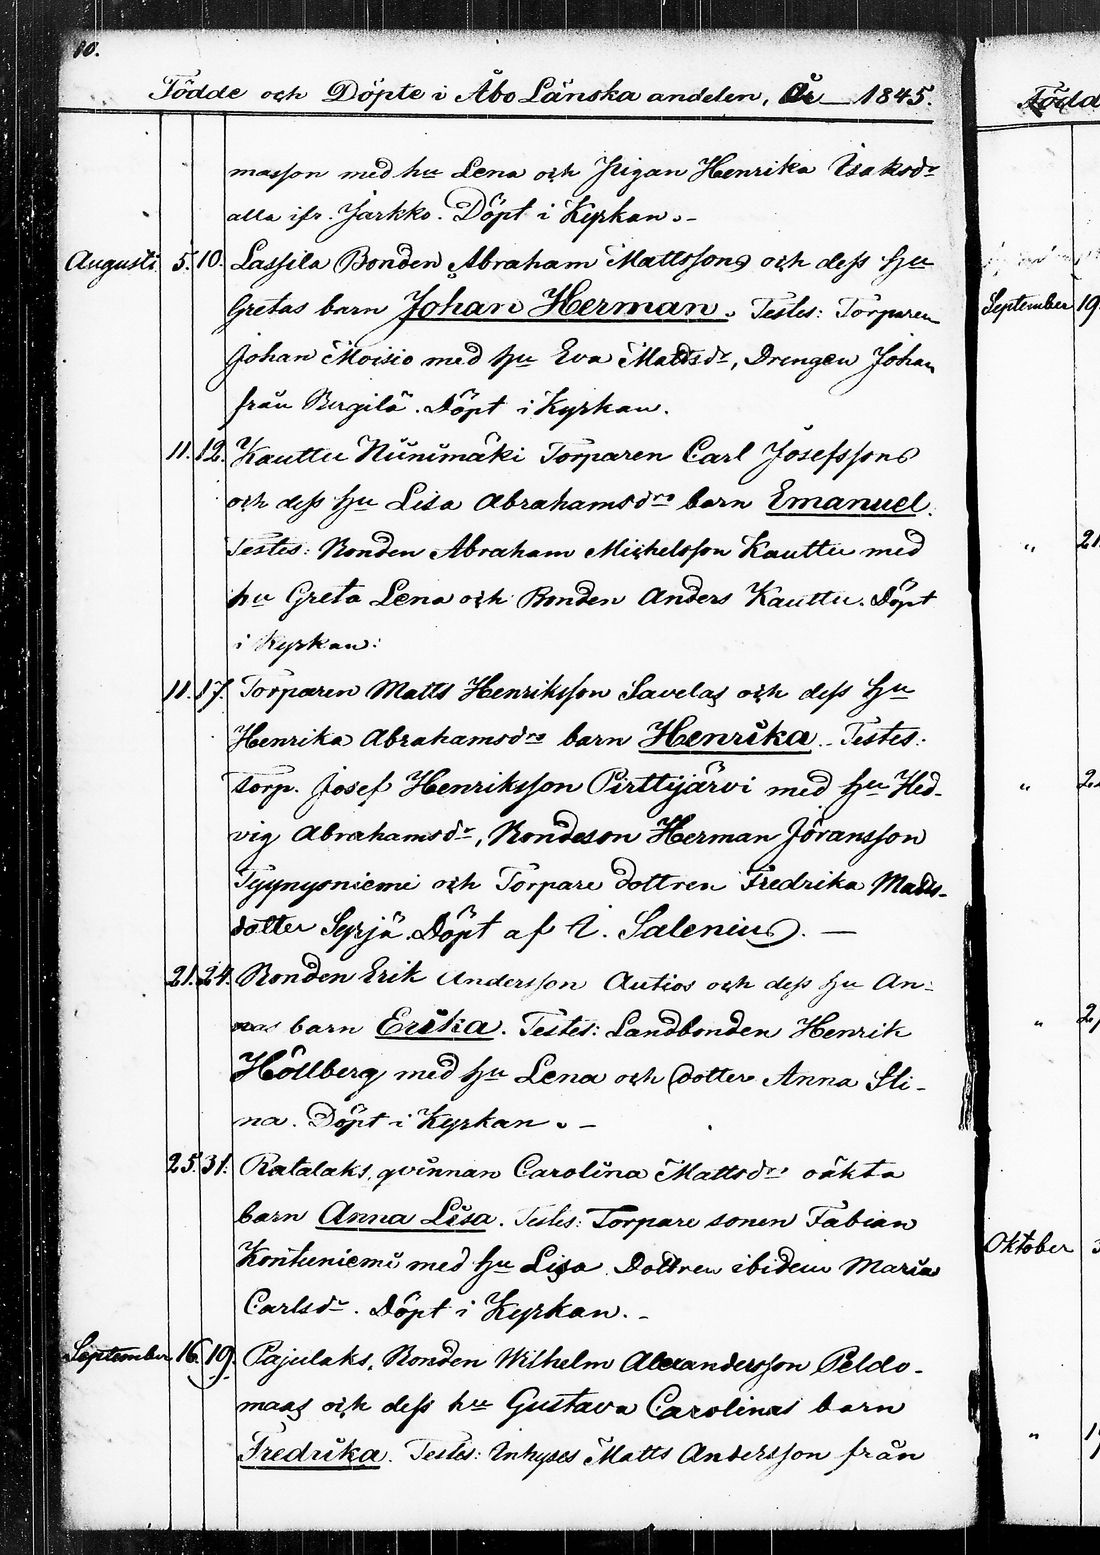 10.
Födde och Döpte i Åbo Länska andelen, År — 1845.
masson med hu Lena och Pigan Henrika Isaksdr
alla ifr. Jarkko. Döpt i Kyrkan. –
Augusti 5. 10. Lassila Bonden Abraham Mattssons och dess hu
Gretas barn Johan Herman. Testes: Torparen
Johan Moisio med hu Eva Mattsdr, Drengen Johan
från Bergilä. Döpt i Kyrkan.
11. 12. Kauttu Niinimäki Torparen Carl Josefssons
och dess hu Lisa Abrahamsdrs barn Emanuel.
Testes: Bonden Abraham Michelsson Kauttu med
hu Greta Lena och Bonden Anders Kauttu. Döpt
i Kyrkan:
11. 17. Torparen Matts Henriksson Savelas och dess hu
Henrika Abrahamsdrs barn Henrika. – Testes:
torp. Josef Henriksson Pirttijärvi med hu Hed-
vig Abrahamsdr, Bondeson Herman Jöransson
Tyynysniemi och Torpare dottren Fredrika Matts-
dotter Syrjä. Döpt af I. Salenius. —
21. 24. Bonden Erik Andersson Autios och dess hu An-
nas barn Erika. Testes: Landbonden Henrik
Höllberg med hu Lena och dotter Anna Sti-
na. Döpt i Kyrkan. –
25. 31. Ratalaks, qvinnan Carolina Mattsdrs oäkta
barn Anna Lisa. Testes: Torpare sonen Fabian
Kontuniemi med hu Lisa Dottren ibidem Maria
Carlsdr. Döpt i Kyrkan. –
September 16. 19. Pajulaks, Bonden Wilhelm Alexandersson Peldo-
maas och dess hu Gustava Carolinas barn
Fredrika. Testes: Inhyses Matts Andersson från
Född
September 19.
" 21.
"
"
Oktober
"